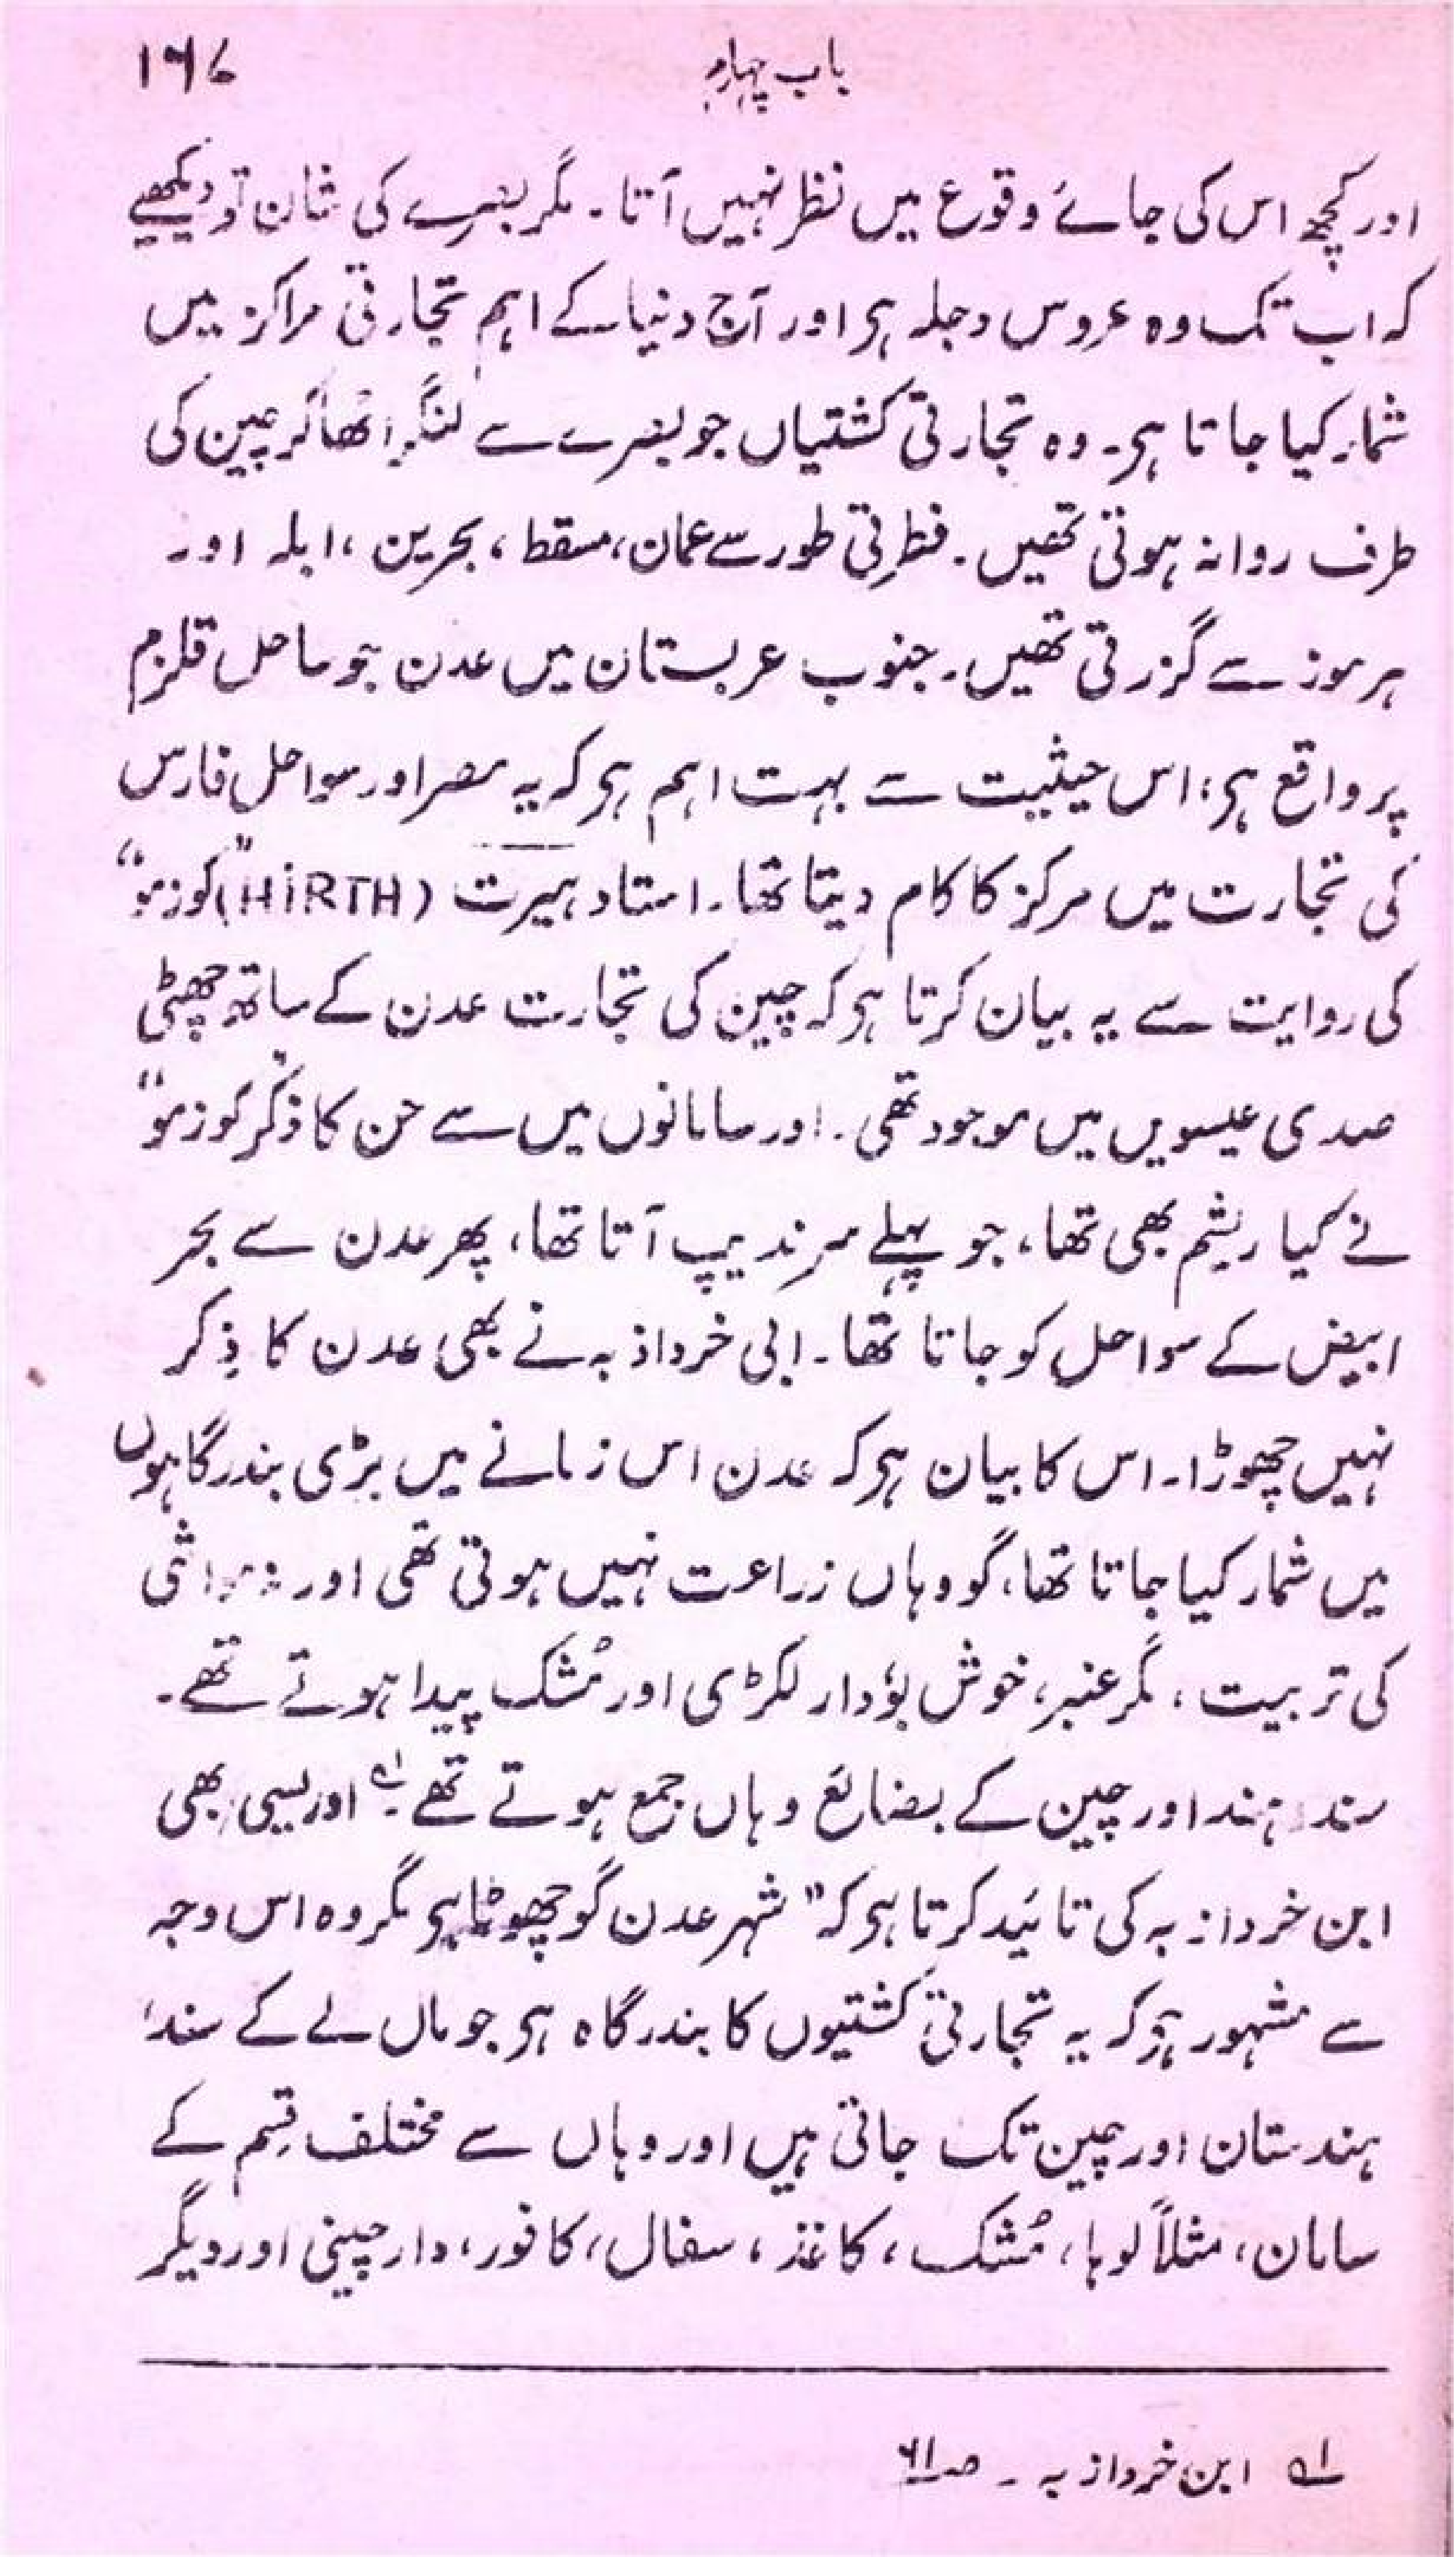 باب چہارم ۱۶۷
اور کچھ اس کی جائے وقوع میں نظر نہیں آتا۔ مگر بصرے کی شان تو دیکھیے
کہ اب تک وہ عروس دجلہ ہی اور آج دنیا کے اہم تجارتی مراکز میں
شمار کیا جاتا ہی۔ وہ تجارتی کشتیاں جو بصرے سے لنگر اٹھا کر چین کی
طرف روانہ ہوتی تھیں۔ فطرتی طور سے عمان، مسقط، بحرین، ابلہ اور
ہرموز سے گزرتی تھیں۔ جنوب عربستان میں عدن جو ساحل قلزم
پر واقع ہی، اس حیثیت سے بہت اہم ہی کہ یہ مصر اور سواحل فارس
کی تجارت میں مرکز کا کام دیتا تھا۔ استاد ہیرت (HiRTH) "کوزمو"
کی روایت سے یہ بیان کرتا ہی کہ چین کی تجارت عدن کے ساتھ چھٹی
صدی عیسویں میں موجود تھی۔ اور سامانوں میں سے جن کا ذکر کوزمو"
نے کیا ریشم بھی تھا، جو پہلے سرندیپ آتا تھا، پھر عدن سے بحر
ابیض کے سواحل کو جاتا تھا۔ ابی خرداذبہ نے بھی عدن کا ذِکر
نہیں چھوڑا۔ اس کا بیان ہی کہ عدن اس زمانے میں بڑی بندرگاہوں
میں شمار کیا جاتا تھا، گو وہاں زراعت نہیں ہوتی تھی اور نہ
کی تربیت، مگر عنبر، خوش بوٗدار لکڑی اور مُشک پیدا ہوتے تھے۔
سند، ہند اور چین کے بضائع وہاں جمع ہوتے تھے لہ ادریسی بھی
ابن خردازبہ کی تائید کرتا ہی کہ "شہر عدن گو چھوٹا ہی مگر وہ اس وجہ
سے مشہور ہی کہ یہ تجارتی کشتیوں کا بندرگاہ ہی جو مال لے کے سند،
ہندستان اور چین تک جاتی ہیں اور وہاں سے مختلف قِسم کے
سامان، مثلاً لوہا، مُشک، کاغذ، سفال، کافور، دارچینی اور دیگر
لہ ابن خردازبہ ۔ صـ۶۱